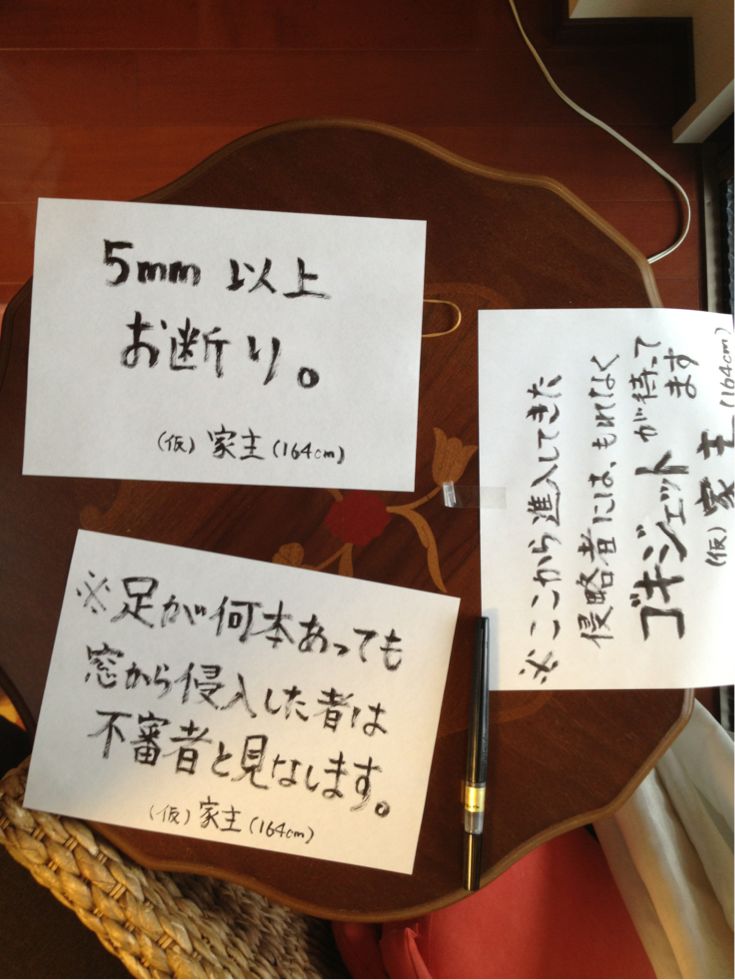 5mm 以上
お断り。
(仮) 家主 (164cm)
※足が何本あっても
窓から侵入した者は
不審者と見なします。
(仮) 家主 (164cm)
※ここから進入してきた
侵略者には、もれなく
ゴキジェットが待って
ます
(仮) 家主 (164cm)